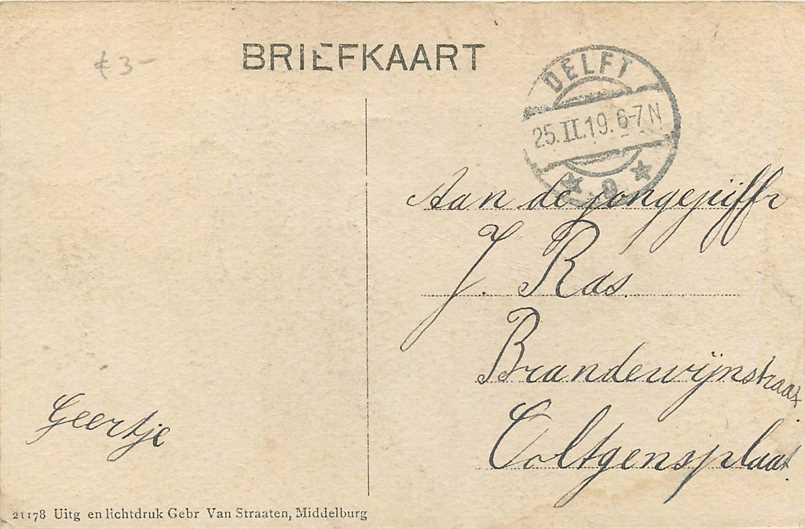 € 3-
BRIEFKAART
DELFT
25.II.19.6-7N
* 9 *
Aan de jongejuffr
J. Ras.
Brandewijnstraat
Ooltgensplaat
Geertje
21178 Uitg en lichtdruk Gebr Van Straaten, Middelburg